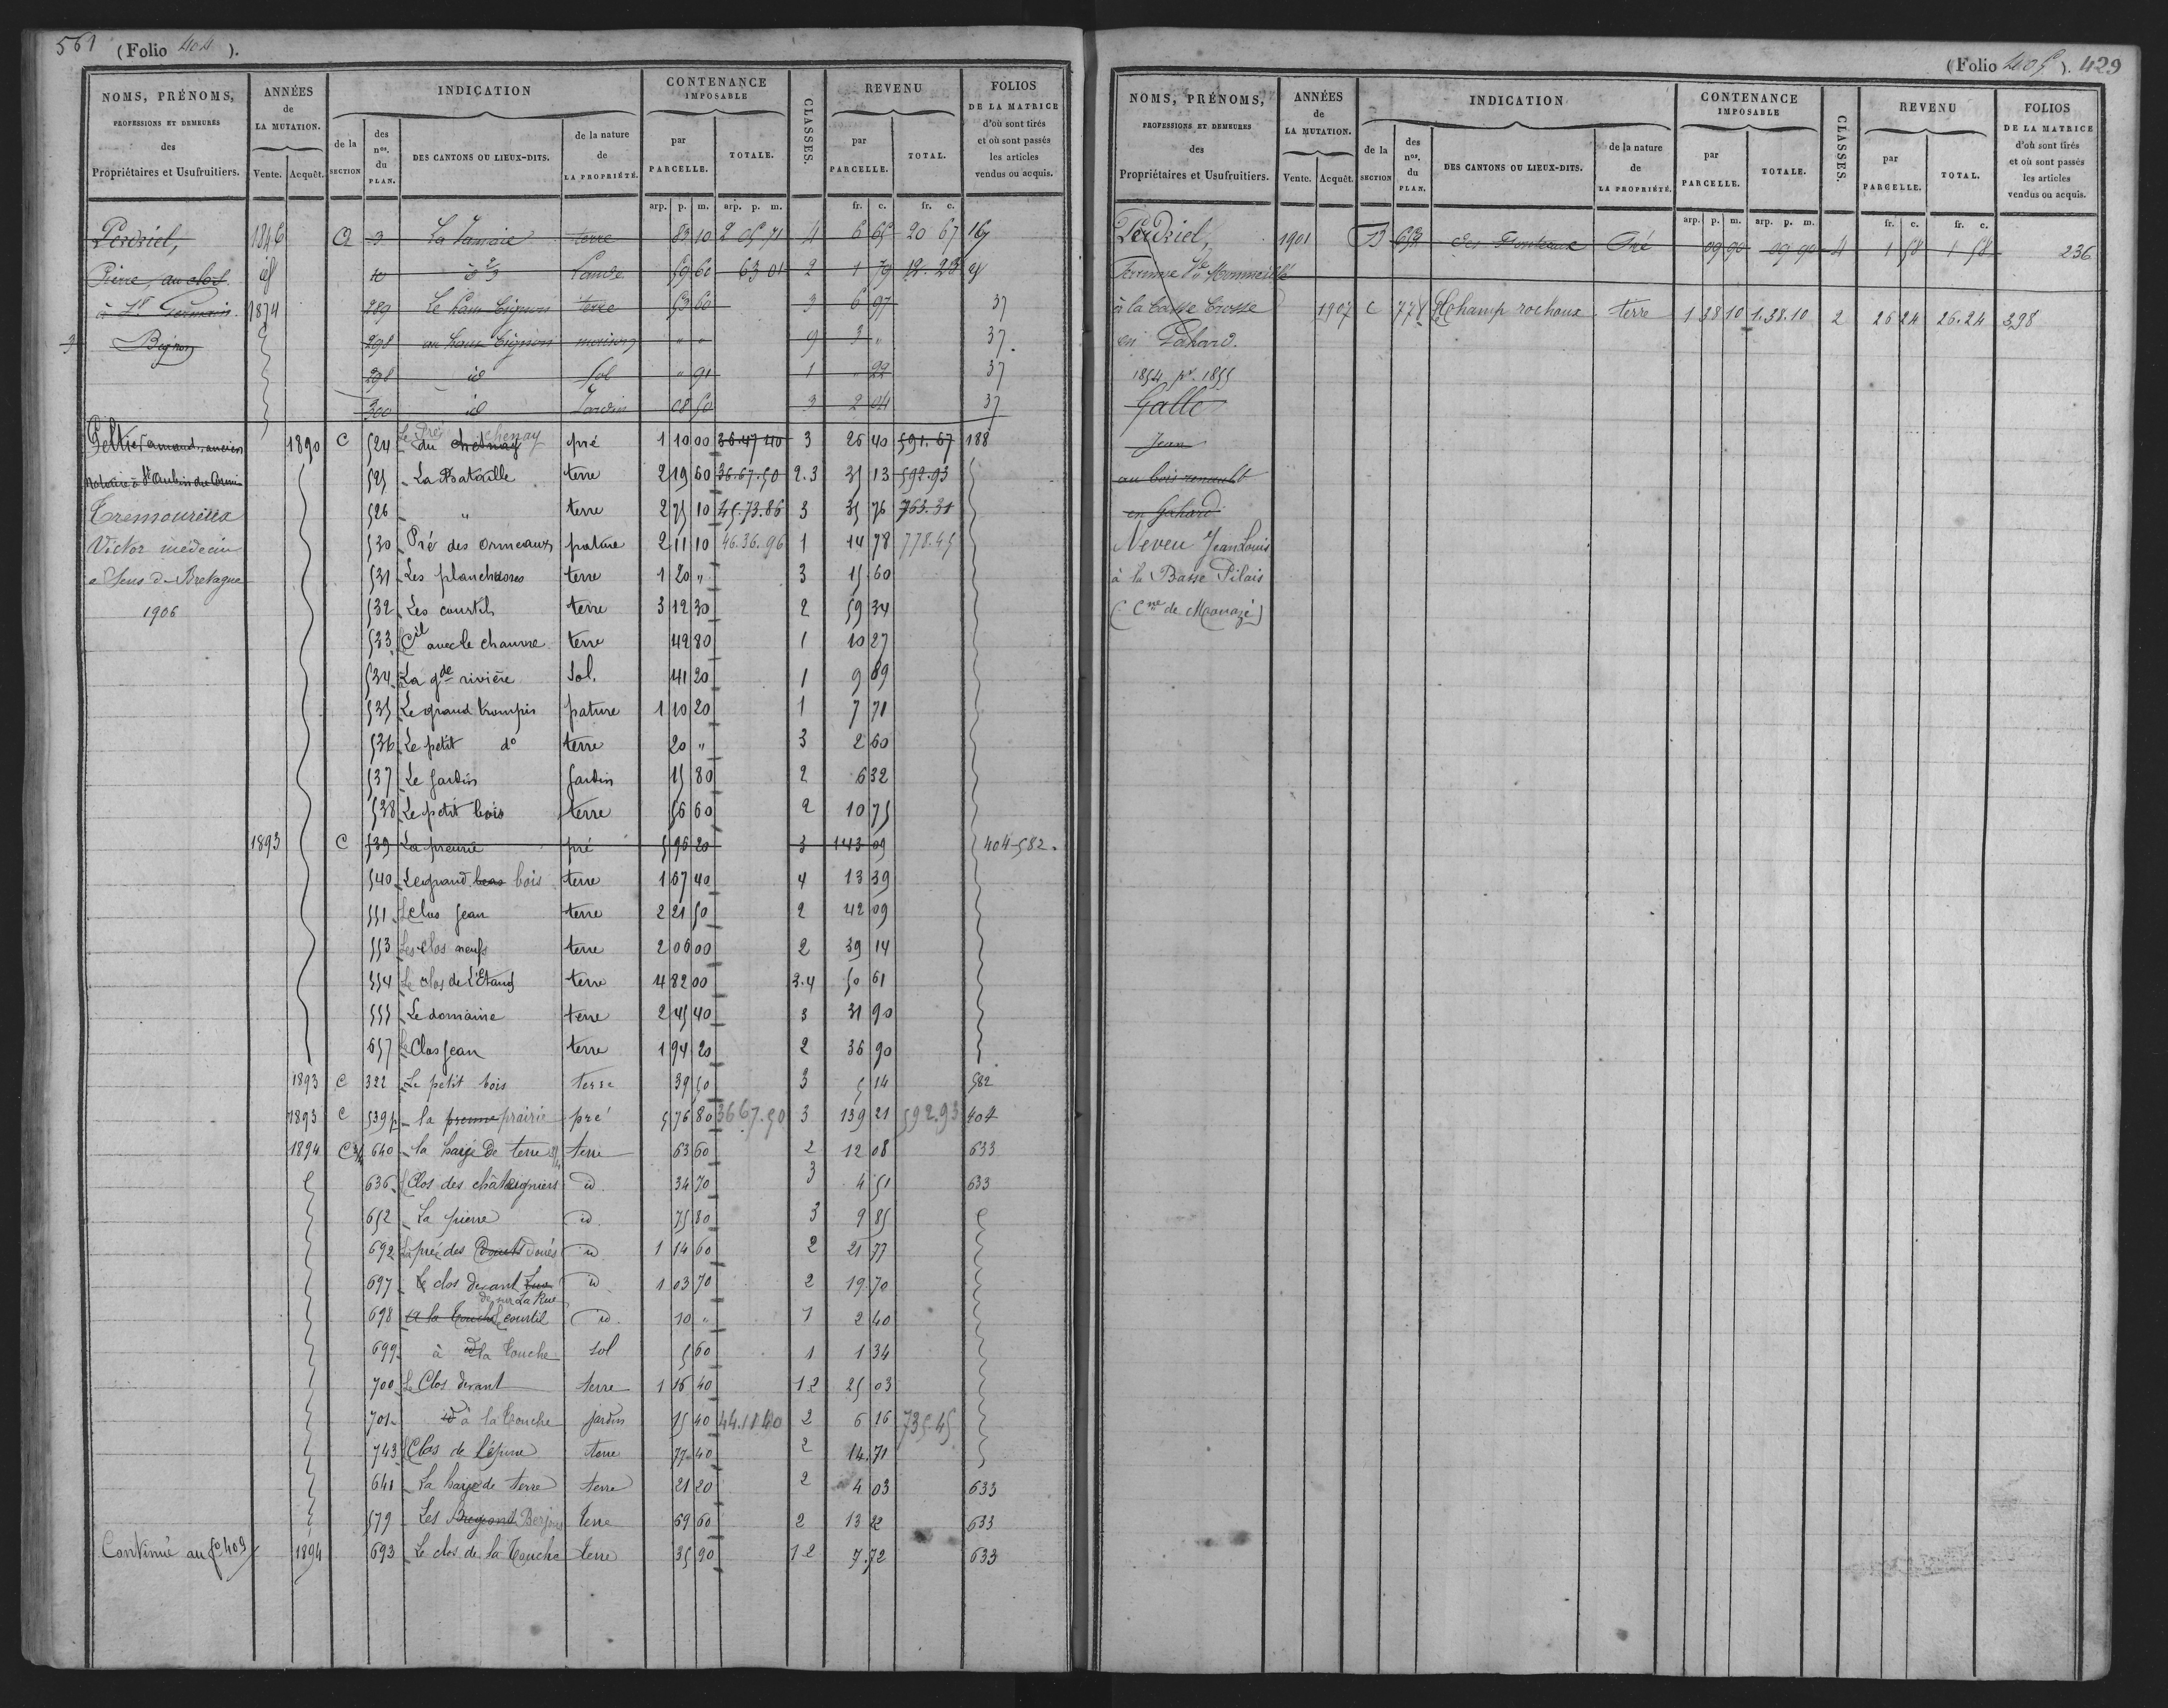 561 (Folio 404).
NOMS, PRÉNOMS, PROFESSIONS ET DEMEURES des Propriétaires et Usufruitiers. | ANNÉES de LA MUTATION. Vente. Acquêt. | INDICATION de la SECTION des nos. du PLAN. DES CANTONS OU LIEUX-DITS. de la nature de LA PROPRIÉTÉ. | CONTENANCE IMPOSABLE par PARCELLE. TOTALE. | CLASSES. | REVENU par PARCELLE. TOTAL. | FOLIOS DE LA MATRICE d'où sont tirés et où sont passés les articles vendus ou acquis.
arp. p. m. arp. p. m. fr. c. fr. c.
Perdriel, 1846 9 terre 83 10 2 05 71 4 6 65 20 67 167
Pierre, au clos id 10 Lande 59 60 63 01 2 1 79 12 23
à St Germain 1874 289 Le haut bignon terre 53 60 3 6 97 37
Bignon 298 au haut bignon maison " " 9 3 " 37
298 id sol " 91 1 " 22 37
300 id Jardin 08 50 3 2 04 37
Peltier amand, ancien 1890 C 524 Le Pré du chenay pré 1 10 00 36.47 40 3 26 40 591.67 188
notaire à St Aubin du Cormier 525 La Bataille terre 2 19 60 36.67.50 2.3 35 13 592.93
Tremoureux 526 " terre 2 75 10 45.73.86 3 35 76 763.31
Victor médecin 530 Pré des ormeaux pature 2 11 10 46.36.96 1 14 78 778.45
a Sens de Bretagne 531 Les planches terre 1 20 " 3 15 60
1906 532 Les courtils terre 3 12 30 2 59 34
533 Cil avec le chanvre terre 49 80 1 10 27
534 La gde rivière Sol. 41 20 1 9 89
535 Le grand trompis pature 1 10 20 1 7 71
536 Le petit do terre 20 " 3 2 60
537 Le jardin jardin 15 80 2 6 32
538 Le petit bois terre 56 60 2 10 75
1893 C 539 La prairie pré 5 96 20 3 143 09 404-582.
540 Le grand bois terre 1 67 40 4 13 39
551 Le clos Jean terre 2 21 50 2 42 09
553 Les clos neufs terre 2 06 00 2 39 14
554 Le clos de l'Etang terre 4 82 00 3.4 50 61
555 Le domaine terre 2 45 40 3 31 90
657 Le Clos Jean terre 1 94 20 2 36 90
1893 C 322 Le petit bois terre 39 50 3 5 14 582
1893 C 539 p la prairie pré 5 76 80 3667.50 3 139 21 592.93 404
1894 C 640 la haye de terre terre 63 60 2 12 08 633
636 Clos des châtaigniers id 34 70 3 4 51 633
652 La pierre id 75 80 3 9 85
692 La prée des doués id 1 14 60 2 21 77
697 Le clos devant id 1 03 70 2 19.70
698 A la Touche courtil id. 10 " 1 2 40
699 à la Touche sol 5 60 1 1 34
700 Le Clos devant terre 1 16 40 1 2 25 03
701 id à la Touche jardin 15 40 44.11.40 2 6 16 735.45
743 Clos de l'épine terre 77 40 2 14.71
641 La haye de terre terre 21 20 2 4 03 633
579 Les terre 69 60 2 13 22 633
Continué au fo 409 1894 693 Le clos de la Touche terre 35 90 1 2 7.72 633
(Folio 405). 429
NOMS, PRÉNOMS, PROFESSIONS ET DEMEURES des Propriétaires et Usufruitiers. | ANNÉES de LA MUTATION. Vente. Acquêt. | INDICATION de la SECTION des nos. du PLAN. DES CANTONS OU LIEUX-DITS. de la nature de LA PROPRIÉTÉ. | CONTENANCE IMPOSABLE par PARCELLE. TOTALE. | CLASSES. | REVENU par PARCELLE. TOTAL. | FOLIOS DE LA MATRICE d'où sont tirés et où sont passés les articles vendus ou acquis.
arp. p. m. arp. p. m. fr. c. fr. c.
Perdriel, 1901 B 652 Pré 09 90 09 90 4 1 58 1 58 236
femme
à la basse brosse 1907 C 778 champ rochoux terre 1 38 10 1.38.10 2 26 24 26.24 398
en Gahard.
1854 pr. 1855
Galle
Jean
au bois renault
en Gahard
Neveu Jean Louis
à la Basse Pilais
(Cne de Mouazé)